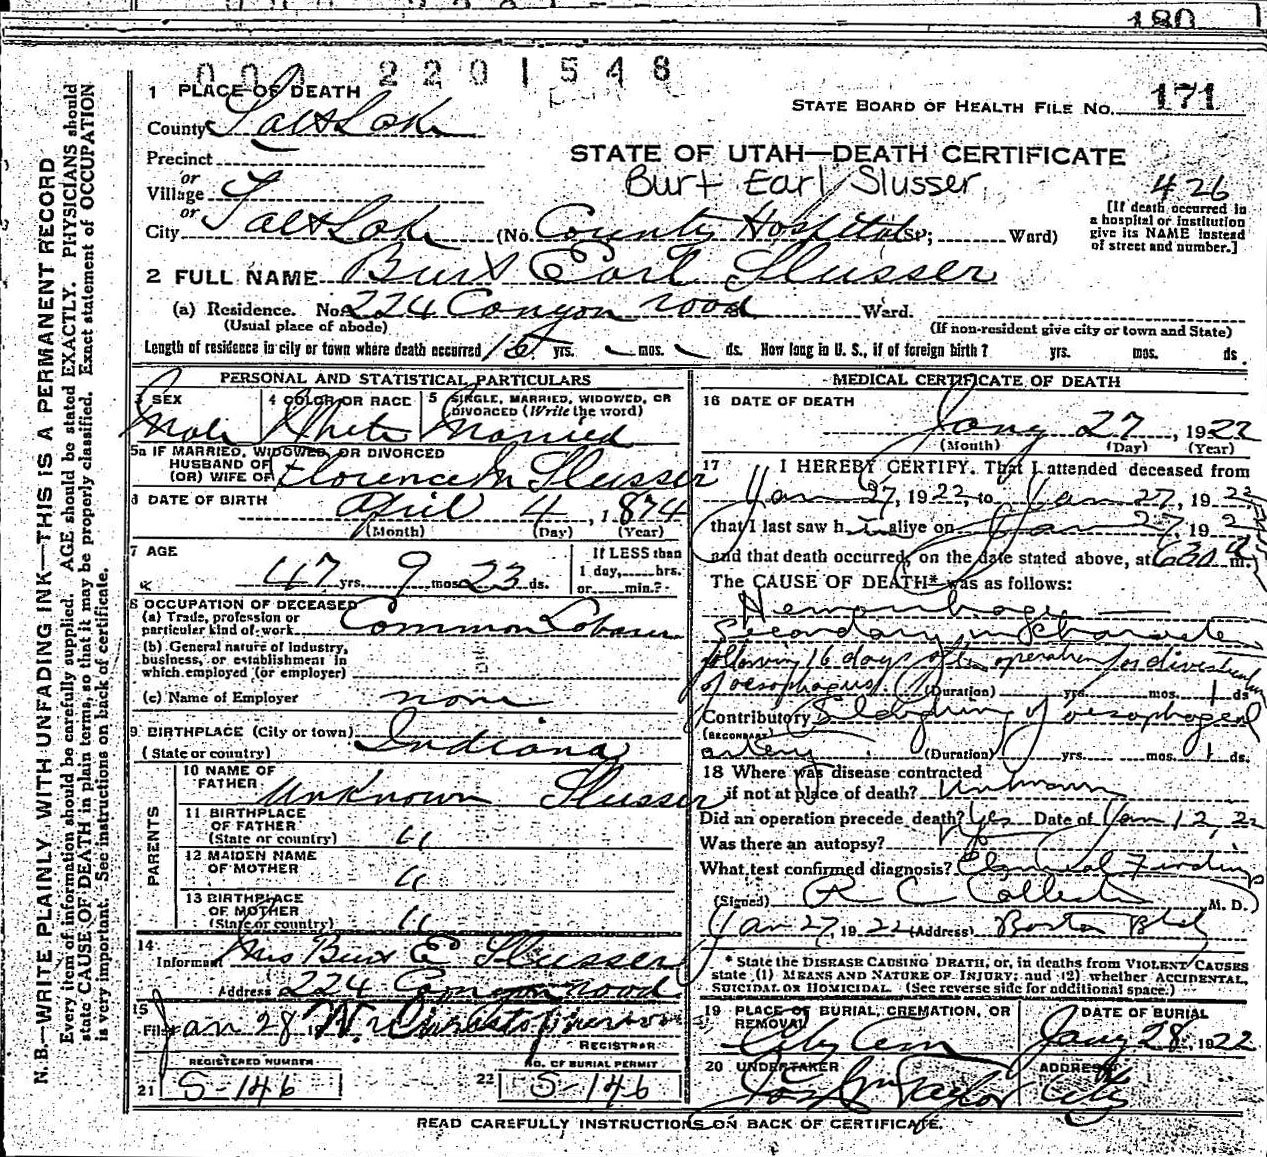 180
000 2201548
1 PLACE OF DEATH
STATE BOARD OF HEALTH FILE No. 171
County Salt Lake
STATE OF UTAH—DEATH CERTIFICATE
Precinct
Burt Earl Slusser
or
Village
426
or
City Salt Lake (No. County Hospital St; Ward)
[If death occurred in a hospital or institution give its NAME instead of street and number.]
2 FULL NAME Burt Earl Slusser
(a) Residence. No. 224 Canyon road Ward.
(Usual place of abode) (If non-resident give city or town and State)
Length of residence in city or town where death occurred yrs. mos. ds. How long in U. S., if of foreign birth? yrs. mos. ds.
PERSONAL AND STATISTICAL PARTICULARS
3 SEX 4 COLOR OR RACE 5 SINGLE, MARRIED, WIDOWED, OR DIVORCED (Write the word)
Male White Married
5a IF MARRIED, WIDOWED, OR DIVORCED
HUSBAND OF
(OR) WIFE OF Florence M Slusser
6 DATE OF BIRTH April 4, 1874
(Month) (Day) (Year)
7 AGE 47 yrs. 9 mos. 23 ds.
If LESS than
1 day, hrs.
or min.?
8 OCCUPATION OF DECEASED
(a) Trade, profession or
particular kind of work Common Laborer
(b) General nature of industry,
business, or establishment in
which employed (or employer)
(c) Name of Employer none
9 BIRTHPLACE (City or town)
(State or country) Indiana
PARENTS
10 NAME OF
FATHER Unknown Slusser
11 BIRTHPLACE
OF FATHER
(State or country) "
12 MAIDEN NAME
OF MOTHER "
13 BIRTHPLACE
OF MOTHER
(State or country) "
14
Informant Mrs Burt E Slusser
Address 224 Canyon road
15
Filed Jan 28
REGISTRAR
REGISTERED NUMBER NO. OF BURIAL PERMIT
21 S-146 22 S-146
MEDICAL CERTIFICATE OF DEATH
16 DATE OF DEATH
Jany 27, 1922
(Month) (Day) (Year)
17 I HEREBY CERTIFY. That I attended deceased from
Jan 27, 1922 to Jan 27, 1922
that I last saw him alive on Jan 27, 192
and that death occurred, on the date stated above, at 630 a m.
The CAUSE OF DEATH* was as follows:
Hemorrhage
Secondary in character
following 16 days after operation for diverticulum
of oesophagus (Duration) yrs. mos. 1 ds
Contributory Sloughing of oesophageal
(SECONDARY)
artery (Duration) yrs. mos. 1 ds.
18 Where was disease contracted
if not at place of death? Unknown
Did an operation precede death? Yes Date of Jan 12, 22
Was there an autopsy?
What test confirmed diagnosis? Clinical Findings
(Signed) R C M. D.
Jan 27, 1922 (Address) Boston Bld
* State the DISEASE CAUSING DEATH, or, in deaths from VIOLENT CAUSES
state (1) MEANS AND NATURE OF INJURY; and (2) whether ACCIDENTAL,
SUICIDAL OR HOMICIDAL. (See reverse side for additional space.)
19 PLACE OF BURIAL, CREMATION, OR REMOVAL DATE OF BURIAL
City Cem Jany 28, 1922
20 UNDERTAKER ADDRESS
Jos Wm Taylor City
READ CAREFULLY INSTRUCTIONS ON BACK OF CERTIFICATE.
N.B.—WRITE PLAINLY, WITH UNFADING INK—THIS IS A PERMANENT RECORD
Every item of information should be carefully supplied. AGE should be stated EXACTLY. PHYSICIANS should
state CAUSE OF DEATH in plain terms, so that it may be properly classified. Exact statement of OCCUPATION
is very important. See instructions on back of certificate.